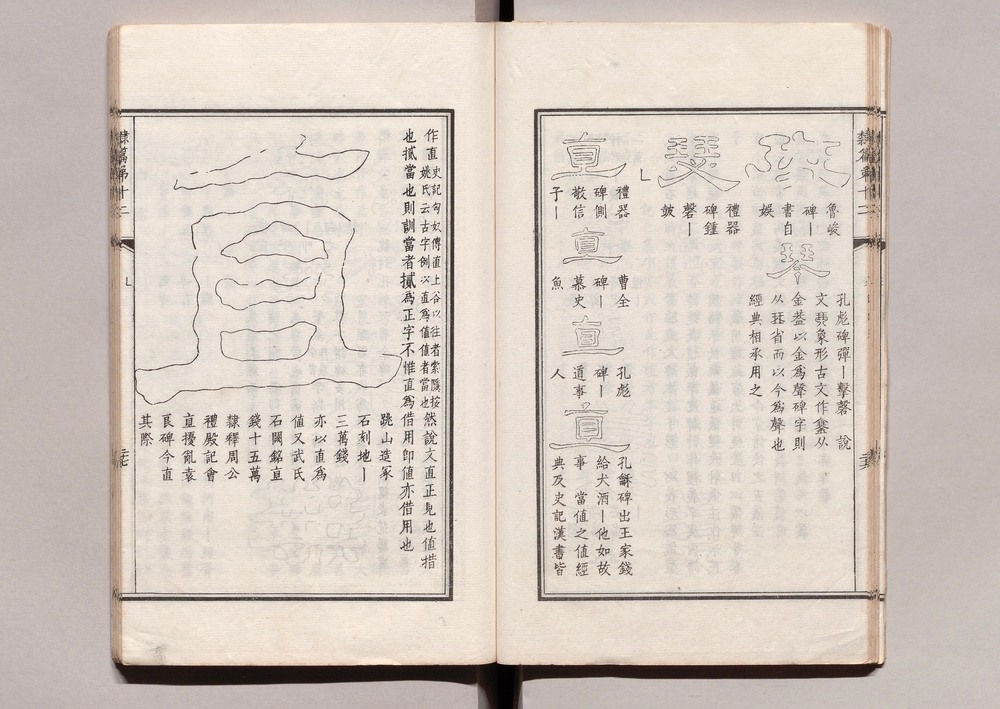 隸篇第十二
琴
魯峻
碑〡
書自
娛
琴
孔彪碑彈〡擊磬　說
文珡象形古文作𨥭从
金葢以金為聲碑字則
从珡省而以今為聲也
經典相承用之
瑟
禮器
碑鍾
磬〡
鼓
𠃊
直
禮器
碑側
敬信
子〡
直
曹全
碑〡
慕史
魚
直
孔彪
碑〡
道事
人
直
孔龢碑出王家錢
給犬酒〡他如故
事　當值之值經
典及史記漢書皆
作直
史記匈奴傳直上谷以往者索隱按
姚氏云古字例以直為值值者當也
然說文直正見也值措
也㨙當也則訓當者㨙為正字不惟直為借用卽值亦借用也
直
跳山造冢
石刻地〡
三萬錢
亦以直為
值又武氏
石闕銘直
錢十五萬
隸釋周公
禮殿記會
直擾亂袁
良碑今直
其際
隸篇第十二